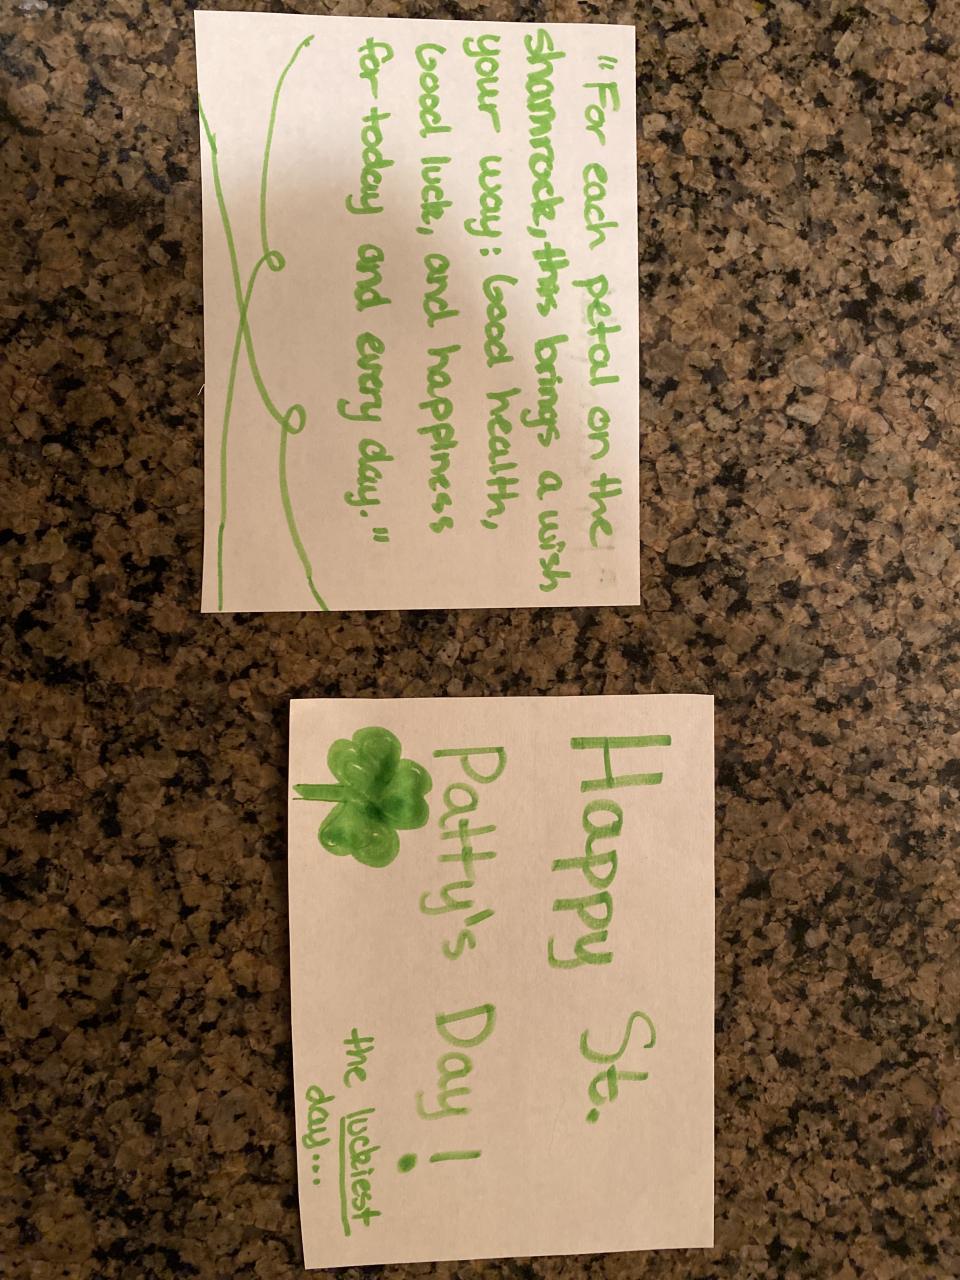 "For each petal on the
shamrock, this brings a wish
your way: Good health,
Good luck, and happiness
for today and every day."
Happy St.
Patty's Day!
the luckiest
day...